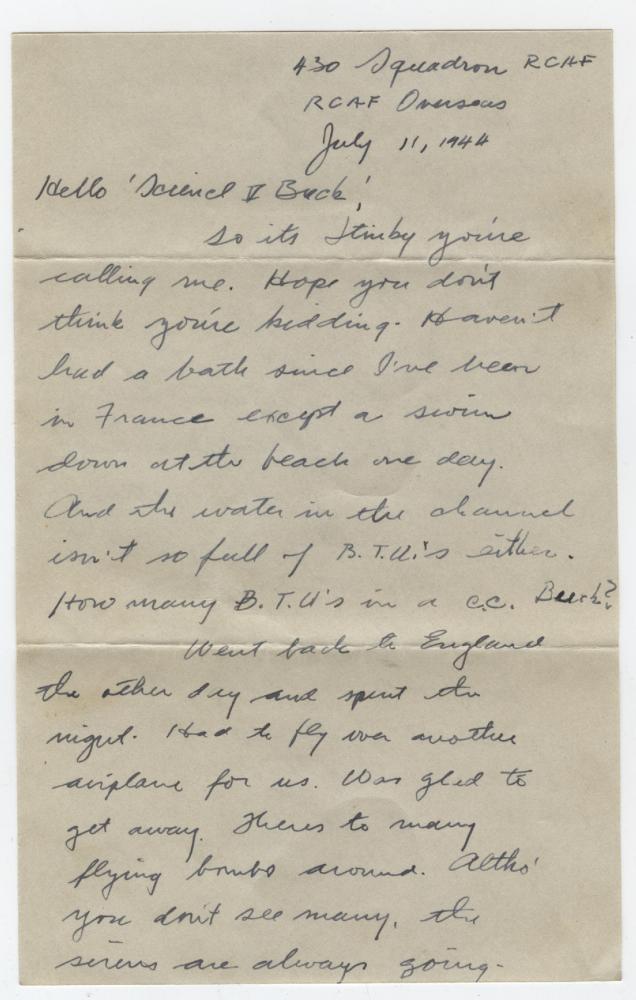 430 Squadron RCAF
RCAF Overseas
July 11, 1944
Hello 'Science II Buck'!
So its Stinky you're
calling me. Hope you don't
think you're kidding. Haven't
had a bath since I've been
in France except a swim
down at the beach one day.
And the water in the channel
isn't so full of B.T.U.'s either.
How many B.T.U's in a c.c. Buck?
Went back to England
the other day and spent the
night. Had to fly over another
airplane for us. Was glad to
get away. Theres to many
flying bombs around. Altho'
you don't see many, the
sirens are always going.